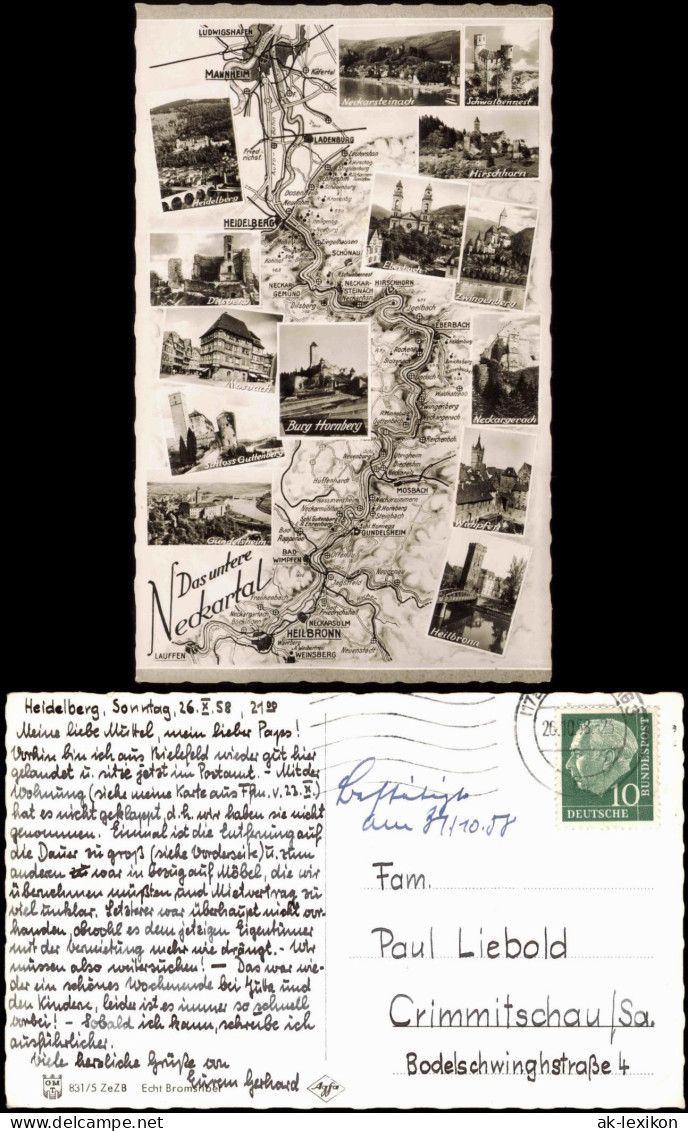 LUDWIGSHAFEN
MANNHEIM
Käfertal
Neckarsteinach
Schwalbennest
Heidelberg
Friedrichsf.
LADENBURG
Hirschhorn
HEIDELBERG
Ziegelhausen
SCHÖNAU
Eberbach
Zwingenberg
Dilsberg
NECKAR-
GEMÜND
NECKAR-
STEINACH
HIRSCHHORN
Dilsberg
Igelbach
EBERBACH
Mosbach
Burg Hornberg
Zwingenberg
Neckargerach
Neckargerach
Schloss Guttenberg
Obrigheim
MOSBACH
Hüffenhardt
Gundelsheim
GUNDELSHEIM
Wimpfen
Bad
Rappenau
BAD
WIMPFEN
Jagstfeld
Das untere
Neckartal
NECKARSULM
HEILBRONN
Heilbronn
LAUFFEN
WEINSBERG
Heidelberg, Sonntag, 26. X. 58, 21 00
Meine liebe Muttel, mein lieber Paps!
Vorhin bin ich aus Bielefeld wieder gut hier
gelandet u. sitze jetzt im Postamt. - Mit der
Wohnung (siehe meine Karte aus Ffm. v. 23. X.)
hat es nicht geklappt, d. h. wir haben sie nicht
genommen. Einmal ist die Entfernung auf
die Dauer zu groß (siehe Vorderseite) u. zum
andern war in bezug auf Möbel, die wir
übernehmen müßten, und Mietvertrag zu
viel unklar. Letzterer war überhaupt nicht vor-
handen, obwohl es dem jetzigen Eigentümer
mit der Vermietung mehr wie drängt. - Wir
müssen also weitersuchen! - Das war wie-
der ein schönes Wochenende bei Jutta und
den Kindern, leider ist es immer so schnell
vorbei! - Sobald ich kann, schreibe ich
ausführlicher.
Viele herzliche Grüße von
Eurem Gerhard
Bestätigt
am 31/10.58
26.10.58
10
DEUTSCHE
BUNDESPOST
Fam.
Paul Liebold
Crimmitschau/Sa.
Bodelschwinghstraße 4
831/5 ZeZB Echt Bromsilber
Agfa
ak-lexikon.com